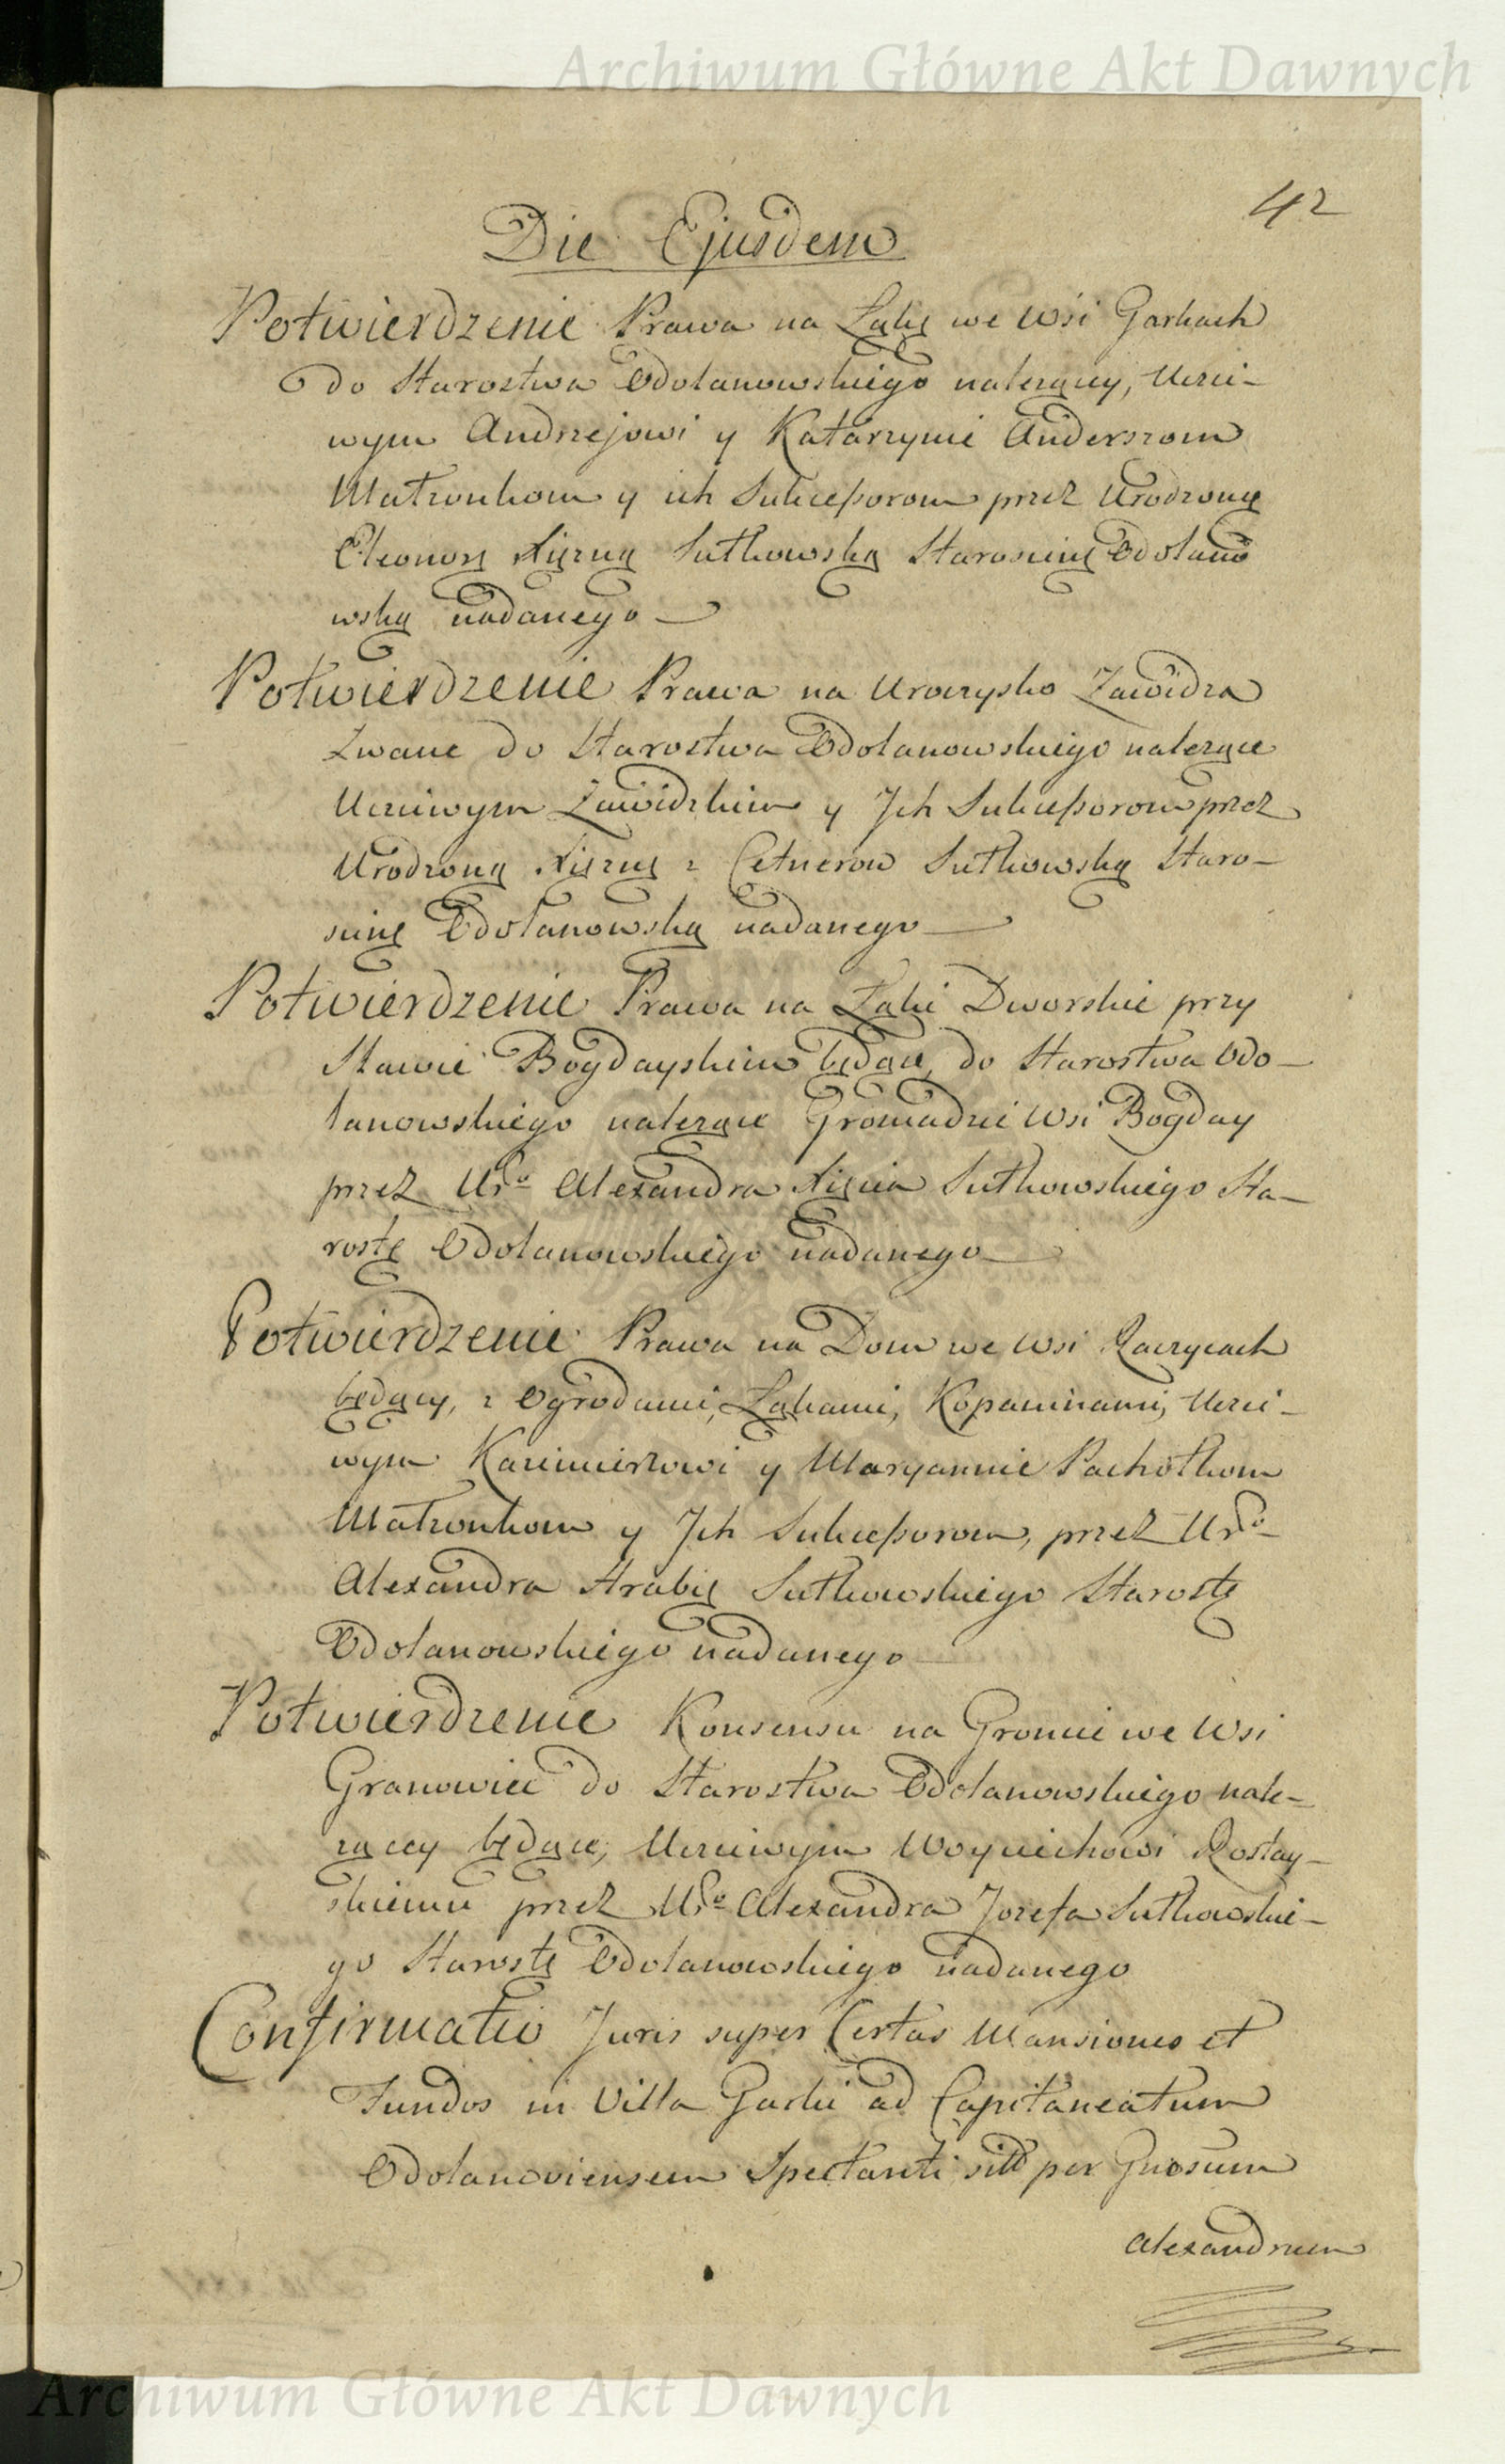 Archiwum Główne Akt Dawnych
42
Die Ejusdem
Potwierdzenie Prawa na Łąkę we Wsi Garkach
do Starostwa Odolanowskiego należący, Uczci-
wym Andrzejowi y Katarzynie Anderszom
Małżonkom y ich Sukceßorom przez Urodzoną
Eleonorę Xiężnę Sułkowską Starościnę Odolano
wską nadanego
Potwierdzenie Prawa na Uroczysko Zawidza
zwane do Starostwa Odolanowskiego należące
Uczciwym Zawidzkim y Jch Sukceßorom przez
Urodzoną Xiężnę z Cetnerow Sułkowską Staro-
scinę Odolanowską nadanego
Potwierdzenie Prawa na Łąki Dworskie przy
Stawie Bogdayskim będące, do Starostwa Odo-
lanowskiego należące Gromadzie Wsi Bogday
przez Uro Alexandra Xięcia Sułkowskiego Sta-
rostę Odolanowskiego nadanego
Potwierdzenie Prawa na Dom we Wsi Raczycach
będący, z Ogrodami, Łąkami, Kopaninami, Uczci-
wym Kazimierzowi y Maryannie Pachołkom
Małżonkom y Jch Sukceßorom, przez Uro
Alexandra Hrabię Sułkowskiego Starostę
Odolanowskiego nadanego
Potwierdzenie Konsensu na Gruncie we Wsi
Granowiec do Starostwa Odolanowskiego nale-
żącey będące, Uczciwym Woyciechowi Rostay-
skiemu przez Uro Alexandra Jozefa Sułkowskie-
go Starostę Odolanowskiego nadanego
Confirmatio Juris super Certas Mansiones et
Fundos in Villa Garki ad Capitaneatum
Odolanoviensem Spectanti per Gnosum
Alexandrum
Archiwum Główne Akt Dawnych